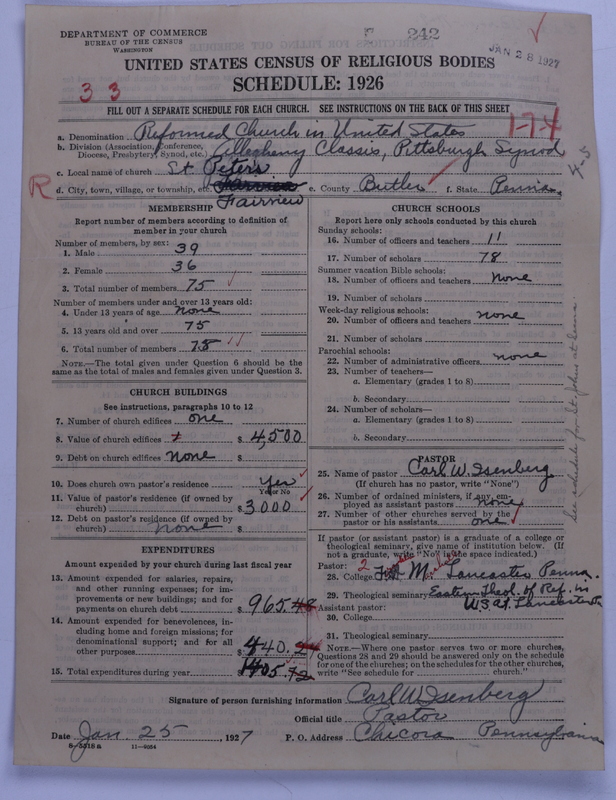 DEPARTMENT OF COMMERCE
BUREAU OF THE CENSUS
WASHINGTON
242
JAN 28 1927
UNITED STATES CENSUS OF RELIGIOUS BODIES
SCHEDULE: 1926
33
FILL OUT A SEPARATE SCHEDULE FOR EACH CHURCH. SEE INSTRUCTIONS ON THE BACK OF THIS SHEET
1-7-4
a. Denomination Reformed Church in United States
b. Division (Association, Conference, Diocese, Presbytery, Synod, etc.) Allegheny Classis, Pittsburgh Synod
4-5
c. Local name of church St Peters
R
d. City, town, village, or township, etc. Fairview e. County Butler f. State Penna.
Fairview
MEMBERSHIP
Report number of members according to definition of
member in your church
Number of members, by sex:
1. Male 39
2. Female 36
3. Total number of members 75
Number of members under and over 13 years old:
4. Under 13 years of age none
5. 13 years old and over 75
6. Total number of members 75
NOTE.—The total given under Question 6 should be the
same as the total of males and females given under Question 3.
CHURCH BUILDINGS
See instructions, paragraphs 10 to 12
7. Number of church edifices one
8. Value of church edifices $ 4,500
9. Debt on church edifices none $
10. Does church own pastor's residence Yes
Yes or No
11. Value of pastor's residence (if owned by
church) $ 3000
12. Debt on pastor's residence (if owned by
church) none $
EXPENDITURES
Amount expended by your church during last fiscal year
13. Amount expended for salaries, repairs,
and other running expenses; for im-
provements or new buildings; and for
payments on church debt $ 965.48
14. Amount expended for benevolences, in-
cluding home and foreign missions; for
denominational support; and for all
other purposes $ 440.24
15. Total expenditures during year $ 1405.72
CHURCH SCHOOLS
Report here only schools conducted by this church
Sunday schools:
16. Number of officers and teachers 11
17. Number of scholars 78
Summer vacation Bible schools:
18. Number of officers and teachers none
19. Number of scholars
Week-day religious schools:
20. Number of officers and teachers none
21. Number of scholars
Parochial schools:
22. Number of administrative officers none
23. Number of teachers—
a. Elementary (grades 1 to 8)
b. Secondary
24. Number of scholars—
a. Elementary (grades 1 to 8)
b. Secondary
PASTOR
25. Name of pastor Carl W. Isenberg
(If church has no pastor, write "None")
26. Number of ordained ministers, if any, em-
ployed as assistant pastors none
27. Number of other churches served by the
pastor or his assistants one
If pastor (or assistant pastor) is a graduate of a college or
theological seminary, give name of institution below. (If
not a graduate, write "No" in the space indicated.)
Pastor: 2
28. College F. & M. Lancaster Penna.
29. Theological seminary Eastern Theol. of Ref. in
Assistant pastor: U.S. at Lancaster Pa
30. College
31. Theological seminary
NOTE.—Where one pastor serves two or more churches,
Questions 28 and 29 should be answered only on the schedule
for one of the churches; on the schedules for the other churches,
write "See schedule for church."
See schedule for St Johns at
Signature of person furnishing information Carl W Isenberg
Official title Pastor
Date Jan. 25, 1927 P. O. Address Chicora Pennsylvania
8-5318 a 11-9064